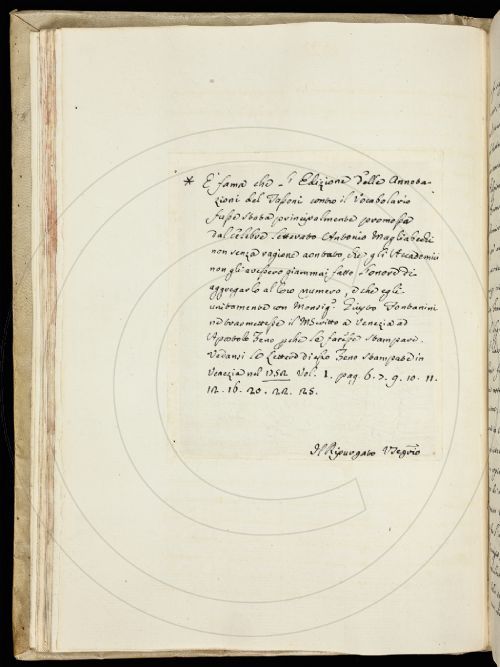 * È fama che l' Edizione delle Annota-
zioni del Tassoni contro il Vocabolario
fusse stata principalmente promossa
dal celebre letterato Antonio Magliabechi
non senza ragione che gli Accademici
non gli avessero giammai fatto l'onore di
aggregarlo al loro numero, e che egli
unitamente con Monsigr. Giusto Fontanini
ne trasmettesse il MScritto a Venezia ad
Apostolo Zeno pche lo facesse stampare.
Vedansi le Lettere di esso Zeno stampate in
Venezia nel 1752 Vol. 1. pag. 6. 7. 9. 10. 11.
12. 16. 20. 22. 25.
Il Ripurgato